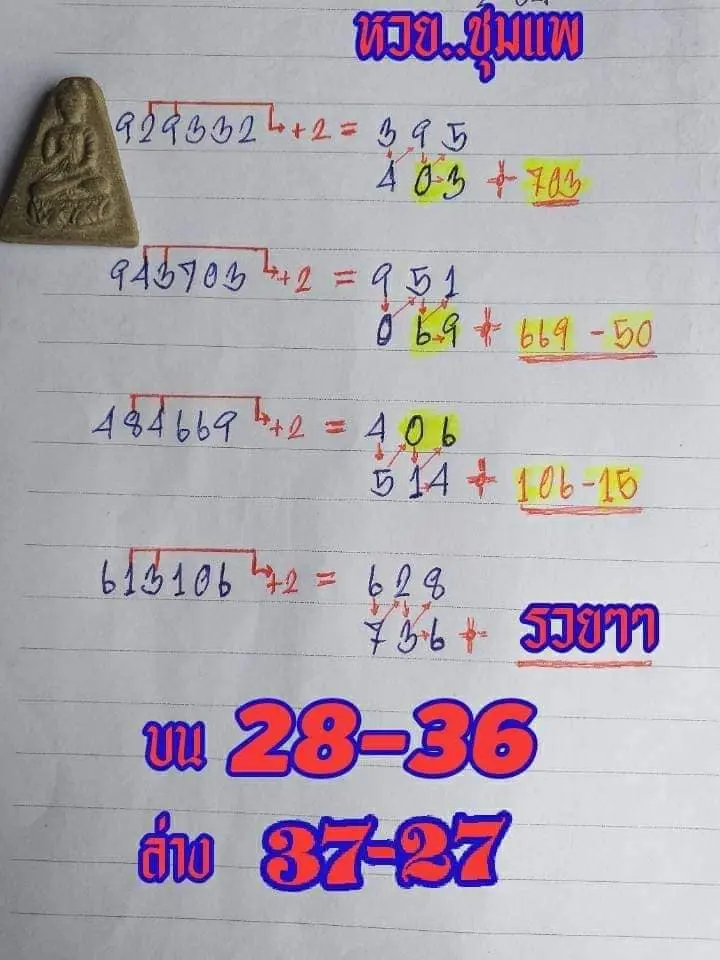 หวย..ชุมแพ
929332 +2 = 395
403 + 703
943703 +2 = 951
069 + 669 - 50
484669 +2 = 406
514 + 106-15
613106 +2 = 628
736 + รวยๆๆ
บน 28-36
ล่าง 37-27